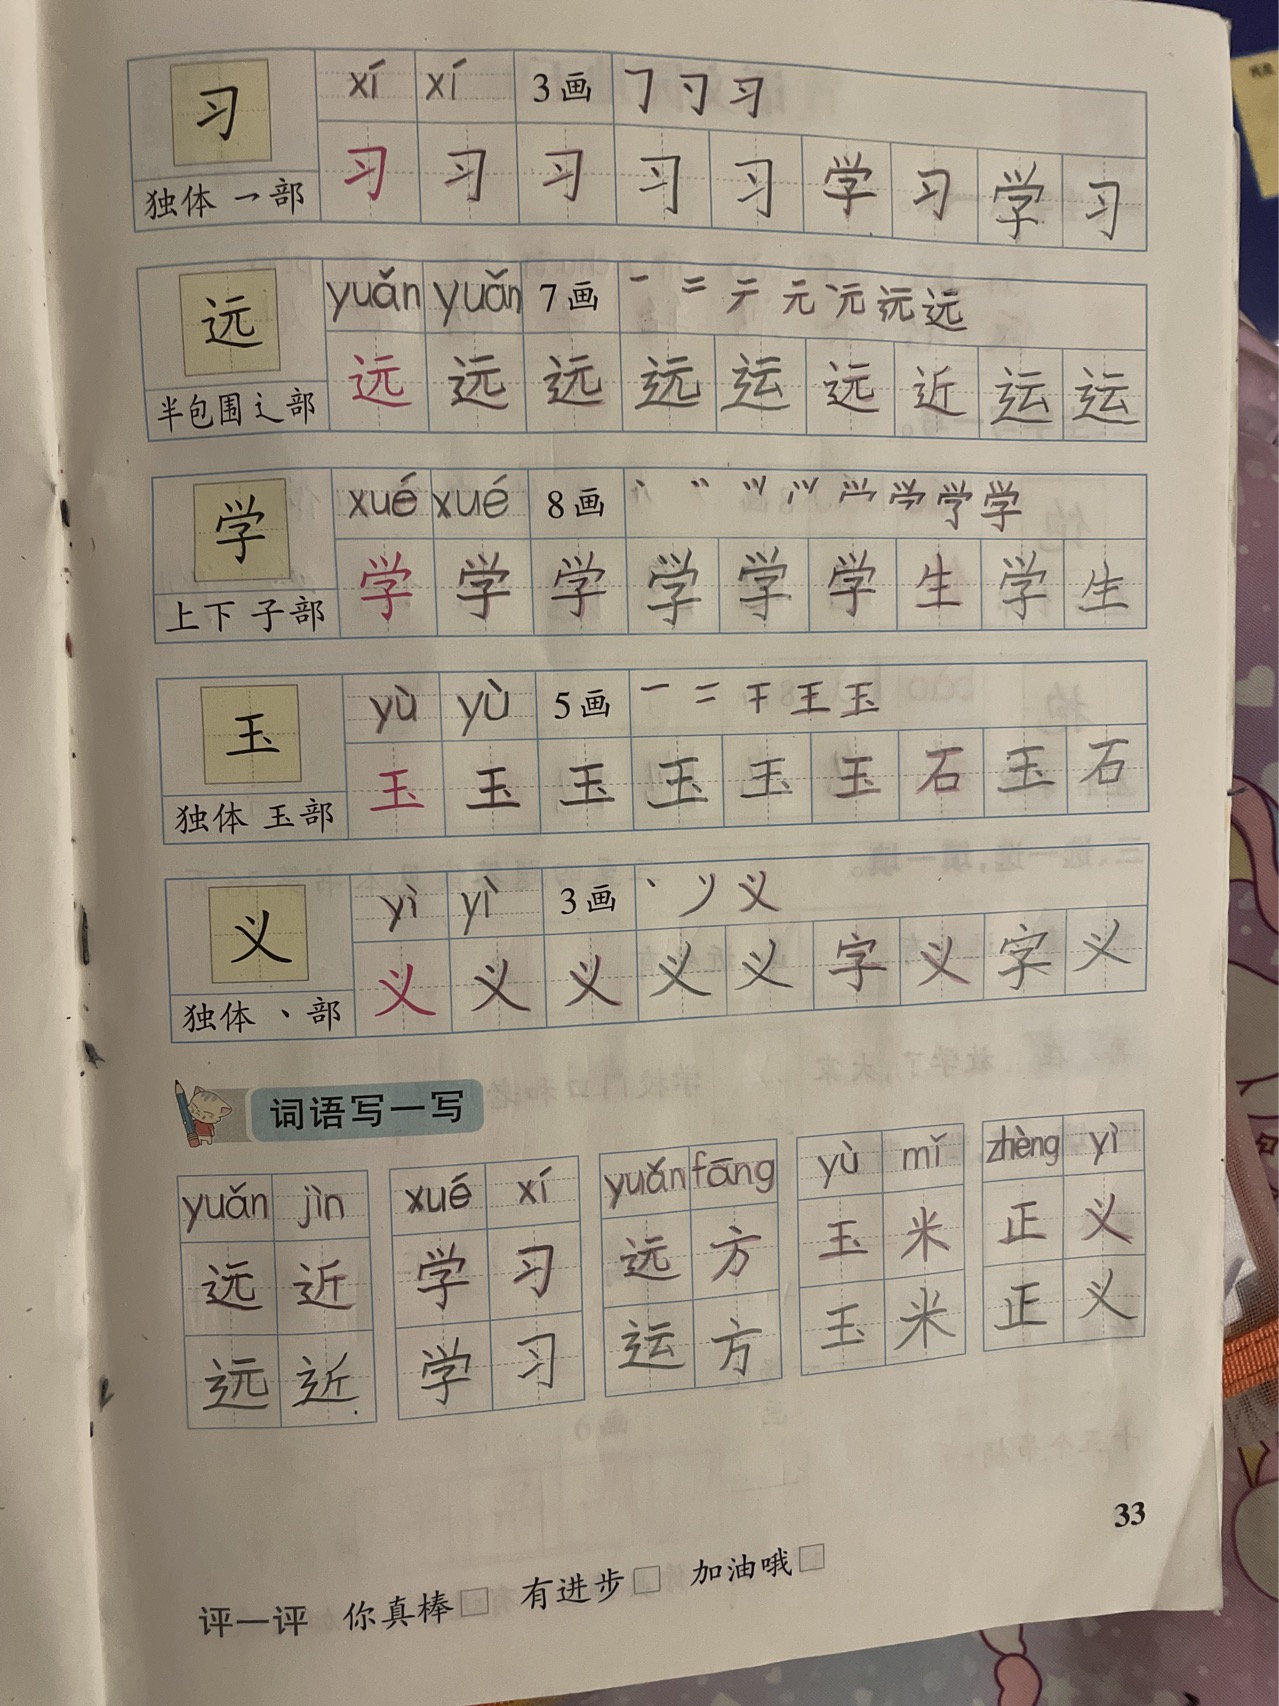 习 xí xí 3画 ㇆ 习 习
习 习 习 习 习 学 习 学 习
独体 乛部
远 yuǎn yuǎn 7画 一 二 元 元 远 远
远 远 远 远 运 远 近 运 运
半包围 辶部
学 xué xué 8画 学 学
学 学 学 学 学 学 生 学 生
上下 子部
玉 yù yù 5画 一 二 干 王 玉
玉 玉 玉 玉 玉 玉 石 玉 石
独体 玉部
义 yì yì 3画 丶 丷 义
义 义 义 义 义 字 义 字 义
独体 丶部
词语写一写
yuǎn jìn xué xí yuǎn fāng yù mǐ zhèng yì
远 近 学 习 远 方 玉 米 正 义
远 近 学 习 运 方 玉 米 正 义
33
评一评 你真棒□ 有进步□ 加油哦□